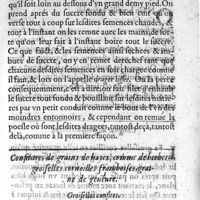 qu'il soit loin au dessous d'vn grand demy pied. On
prend apres du succre fondu & bien cuit en
verse tout a coup sur lesdites semences chaudes, &
tout à l'instant on les remue auec les mains, de sor-
te qu'on leur fait à l'instant boire tout le succre.
Ce que faict, & les semences ainsi sechées &
nues de succre, on y en remet derechef, tant que
chacune desdites semences en soit chargée comme il
faut, & lors on l'appelle dragée lissée. On la perle
consequemment, c'est à dire, on remet de ce
succre tout fondu & bouillant sur lesdites
par vn petit conduit comme le bout de l'
moindres entonnoirs, & cependant on remue la
poesle où sont lesdites dragées, tantost deçà, tantost
delà, comme à la premiere façon.
Confitures de grains de hayes, comme de berberis
groiselles, cornoilles framboises, grai-
ne de geneure.
Groiselles confites.